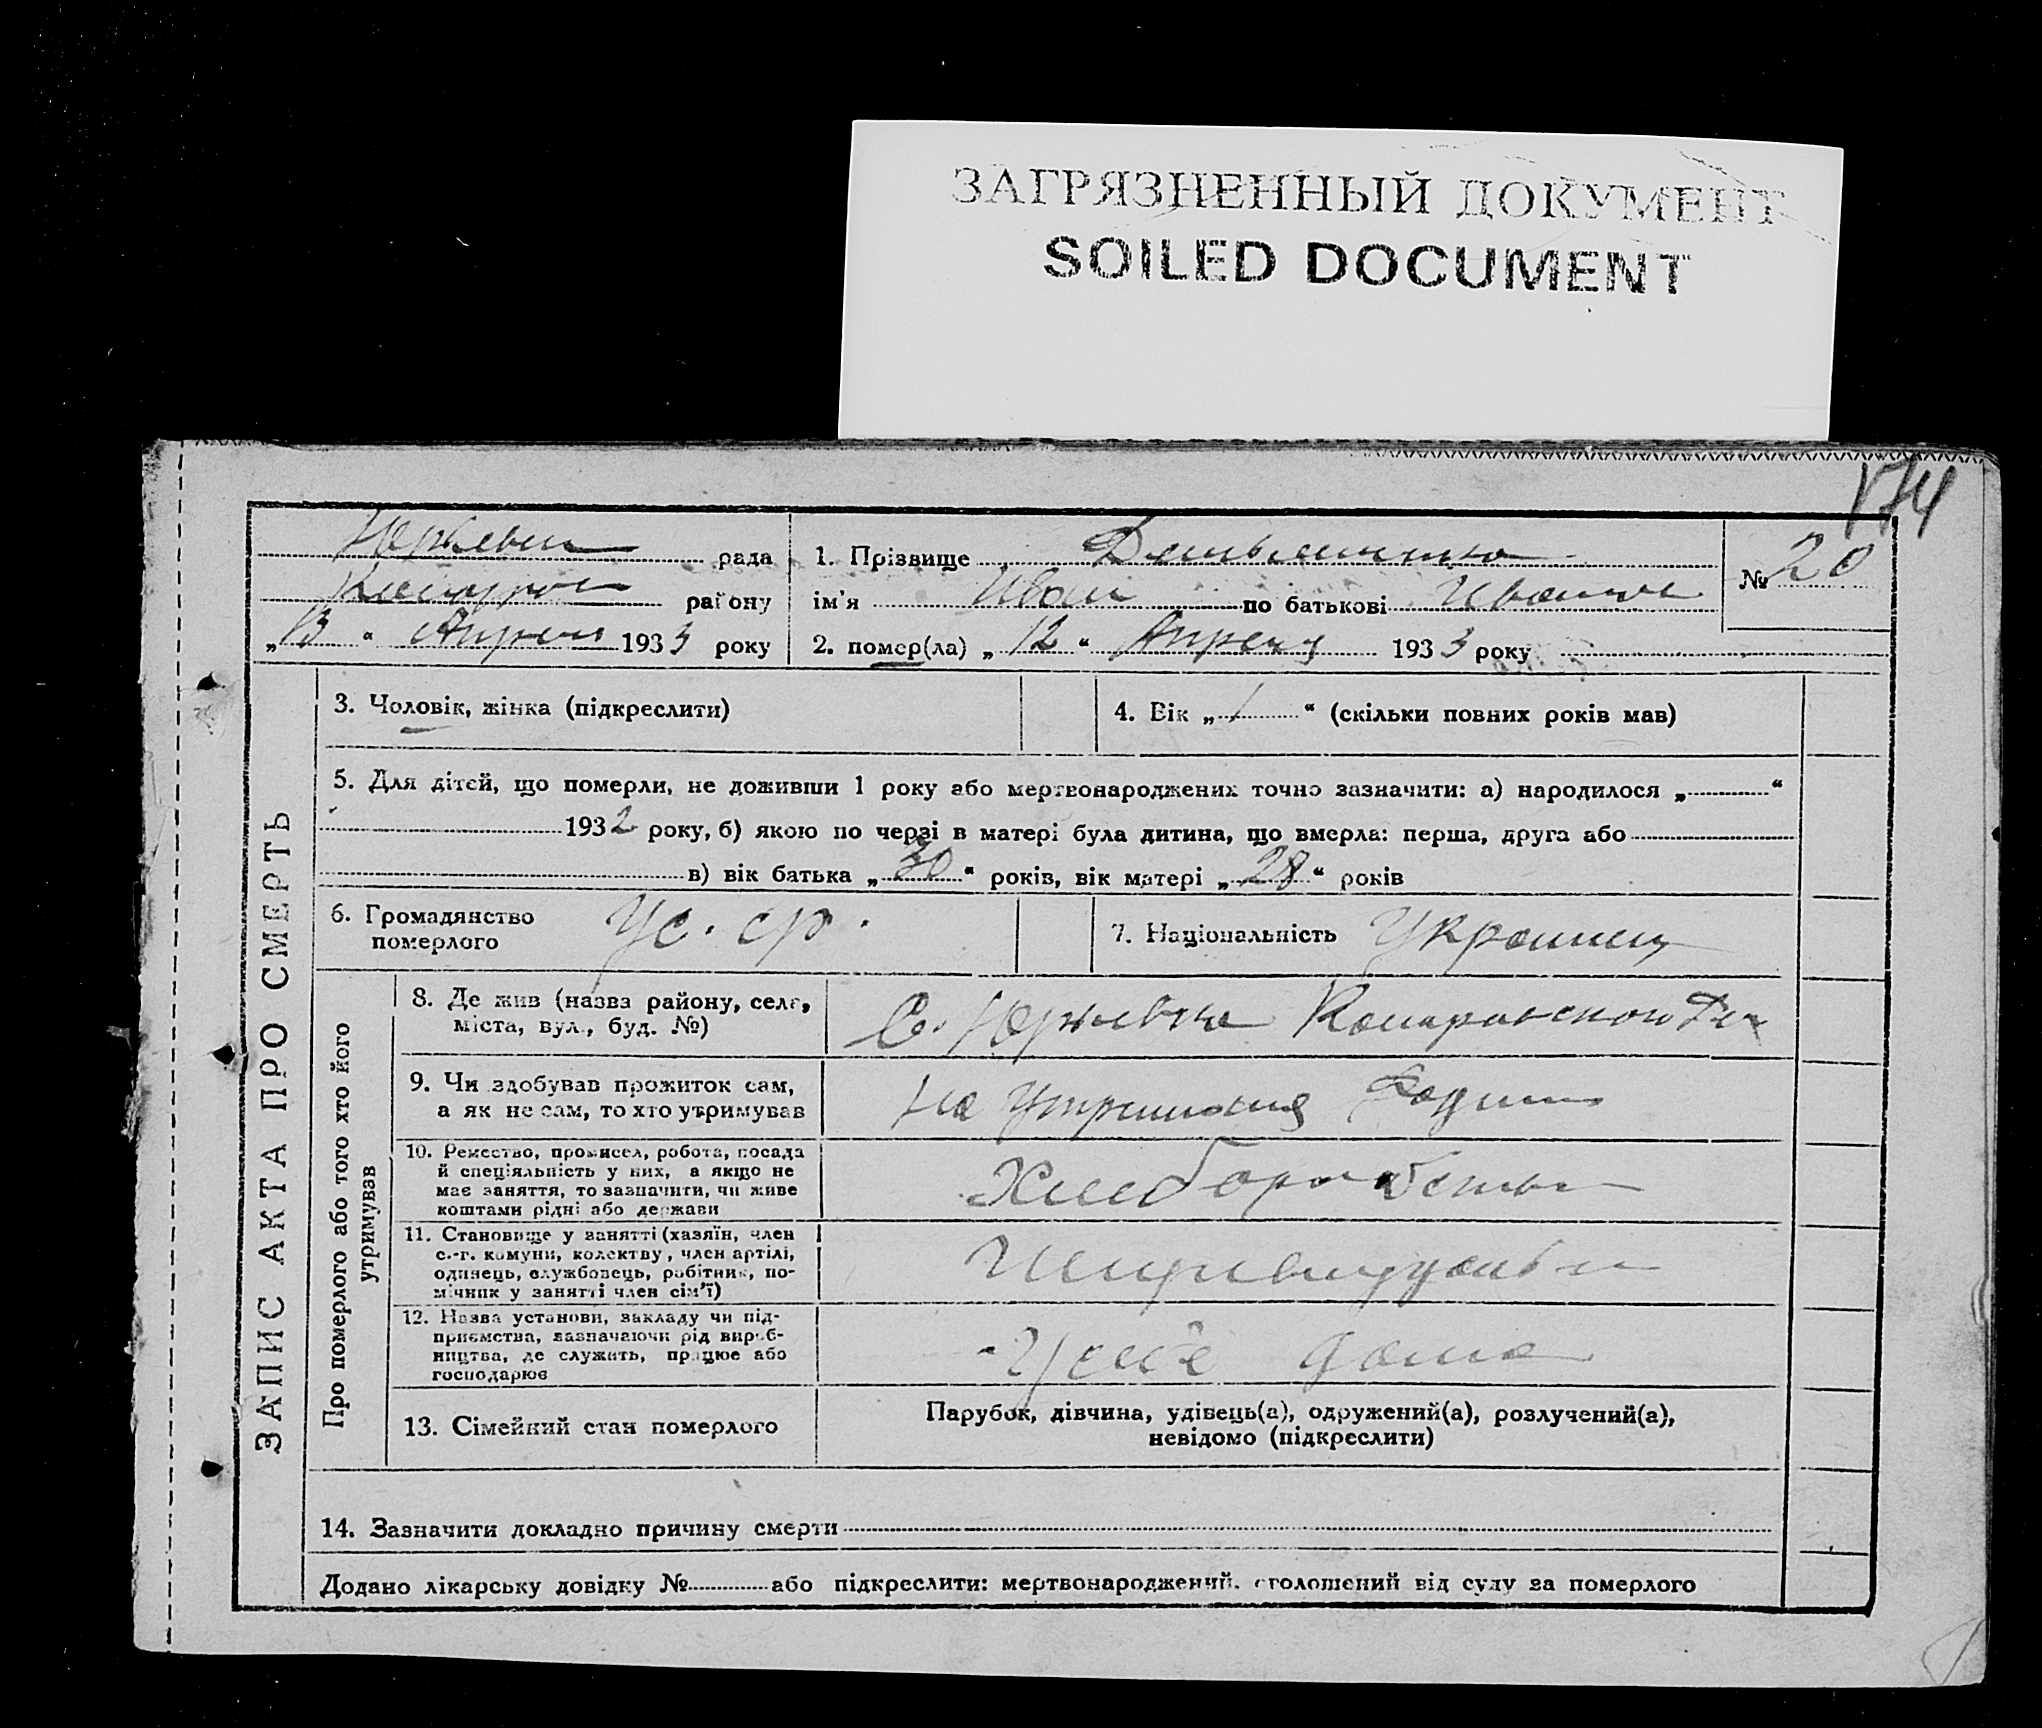 ЗАГРЯЗНЕННЫЙ ДОКУМЕНТ
SOILED DOCUMENT
174
рада
району
„13“ Апреля 1933 року
1. Прізвище
ім'я Иван по батькові
2. помер(ла) „12“ Апреля 1933 року
№ 20
ЗАПИС АКТА ПРО СМЕРТЬ
3. Чоловік, жінка (підкреслити)
4. Вік „1“ (скільки повних років мав)
5. Для дітей, що померли, не доживши 1 року або мертвонароджених точно зазначити: а) народилося „ “
1932 року, б) якою по черзі в матері була дитина, що вмерла: перша, друга або
в) вік батька „30“ років, вік матері „28“ років
6. Громадянство
померлого
Ус. ср.
7. Національність Украинец
Про померлого або того хто його
утримував
8. Де жив (назва району, села,
міста, вул., буд. №)
С. Юрьевка
9. Чи здобував прожиток сам,
а як не сам, то хто утримував
На
10. Ремество, промисел, робота, посада
й спеціяльність у них, а якщо не
має заняття, то зазначити, чи живе
коштами рідні або держави
11. Становище у занятті (хазяїн, член
с.-г. комуни, колектву, член артілі,
одинець, службовець, робітник, по-
мічник у занятті член сім'ї)
12. Назва установи, закладу чи під-
приємства, зазначаючи рід вироб-
ництва, де служить, працює або
господарює
дома
13. Сімейний стан померлого
Парубок, дівчина, удівець(а), одружений(а), розлучений(а),
невідомо (підкреслити)
14. Зазначити докладно причину смерти
Додано лікарську довідку № або підкреслити: мертвонароджений. оголошений від суду за померлого